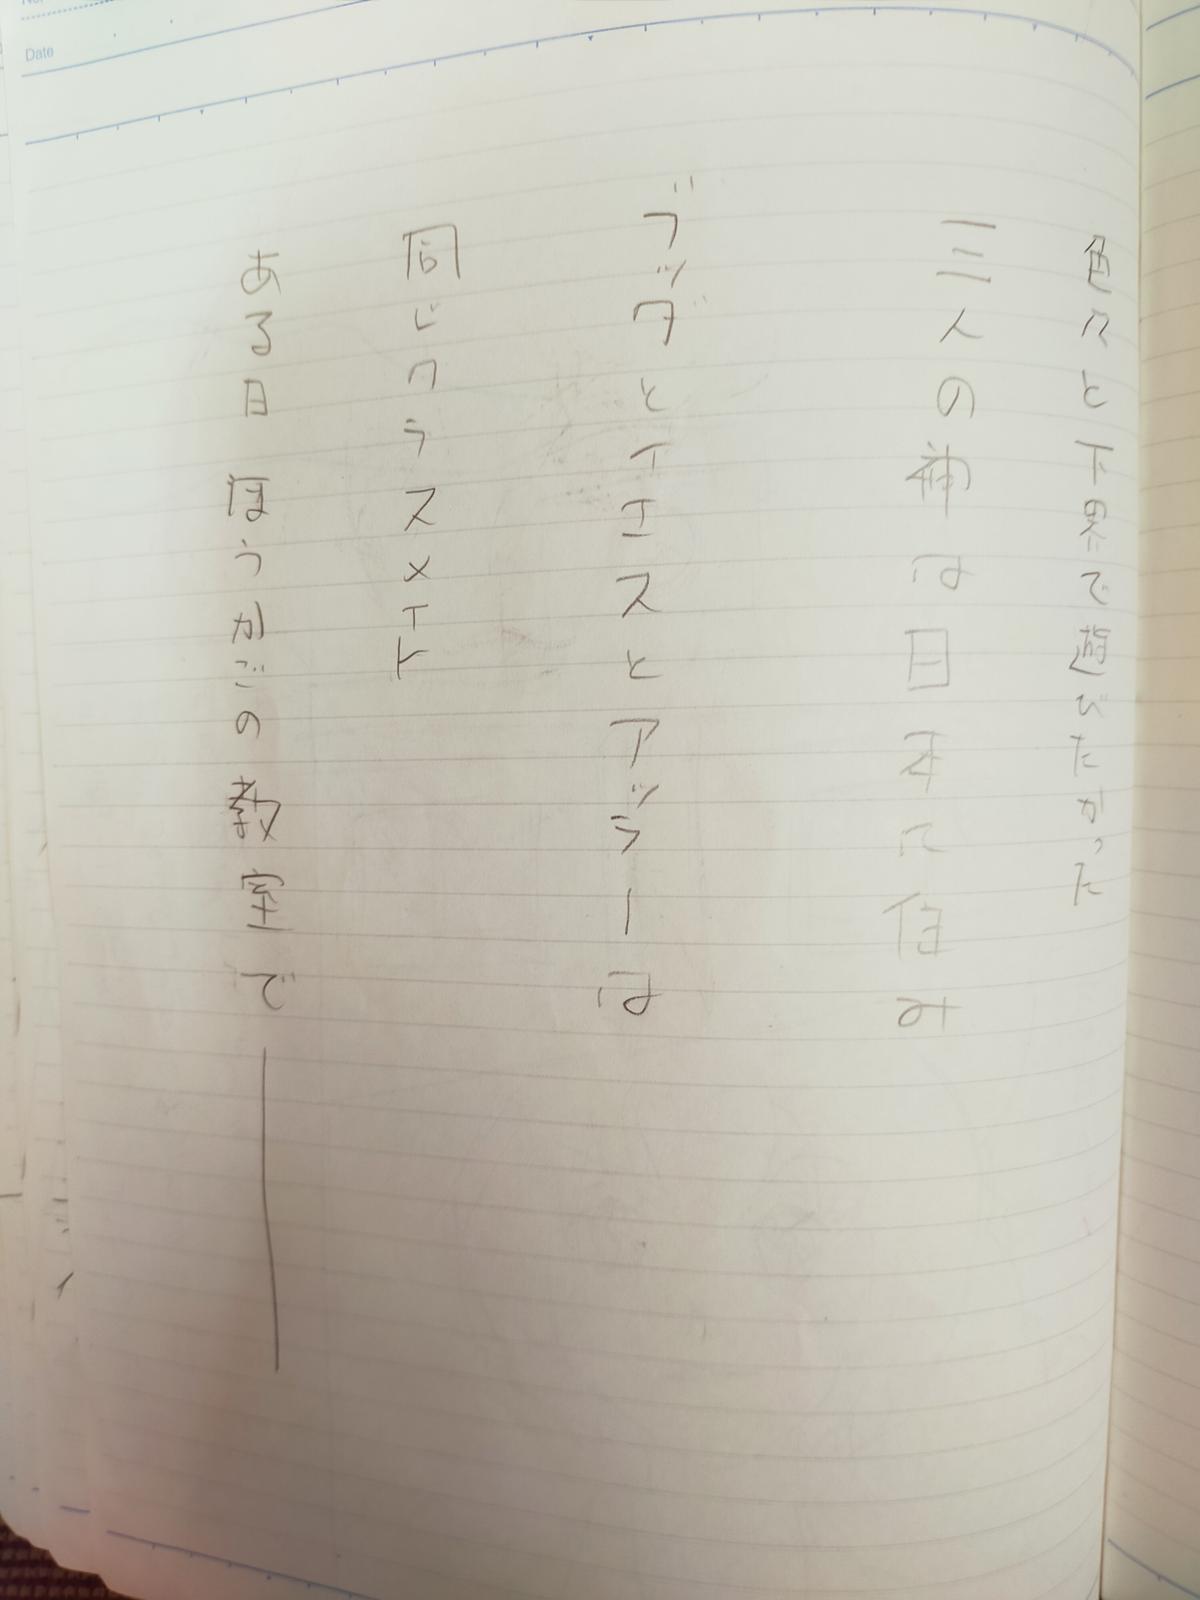 Date
色々と下界で遊びたかった
三人の神は日本に住み
ブッダとイエスとアッラーは
同じクラスメイト
ある日 ほうかごの教室で――